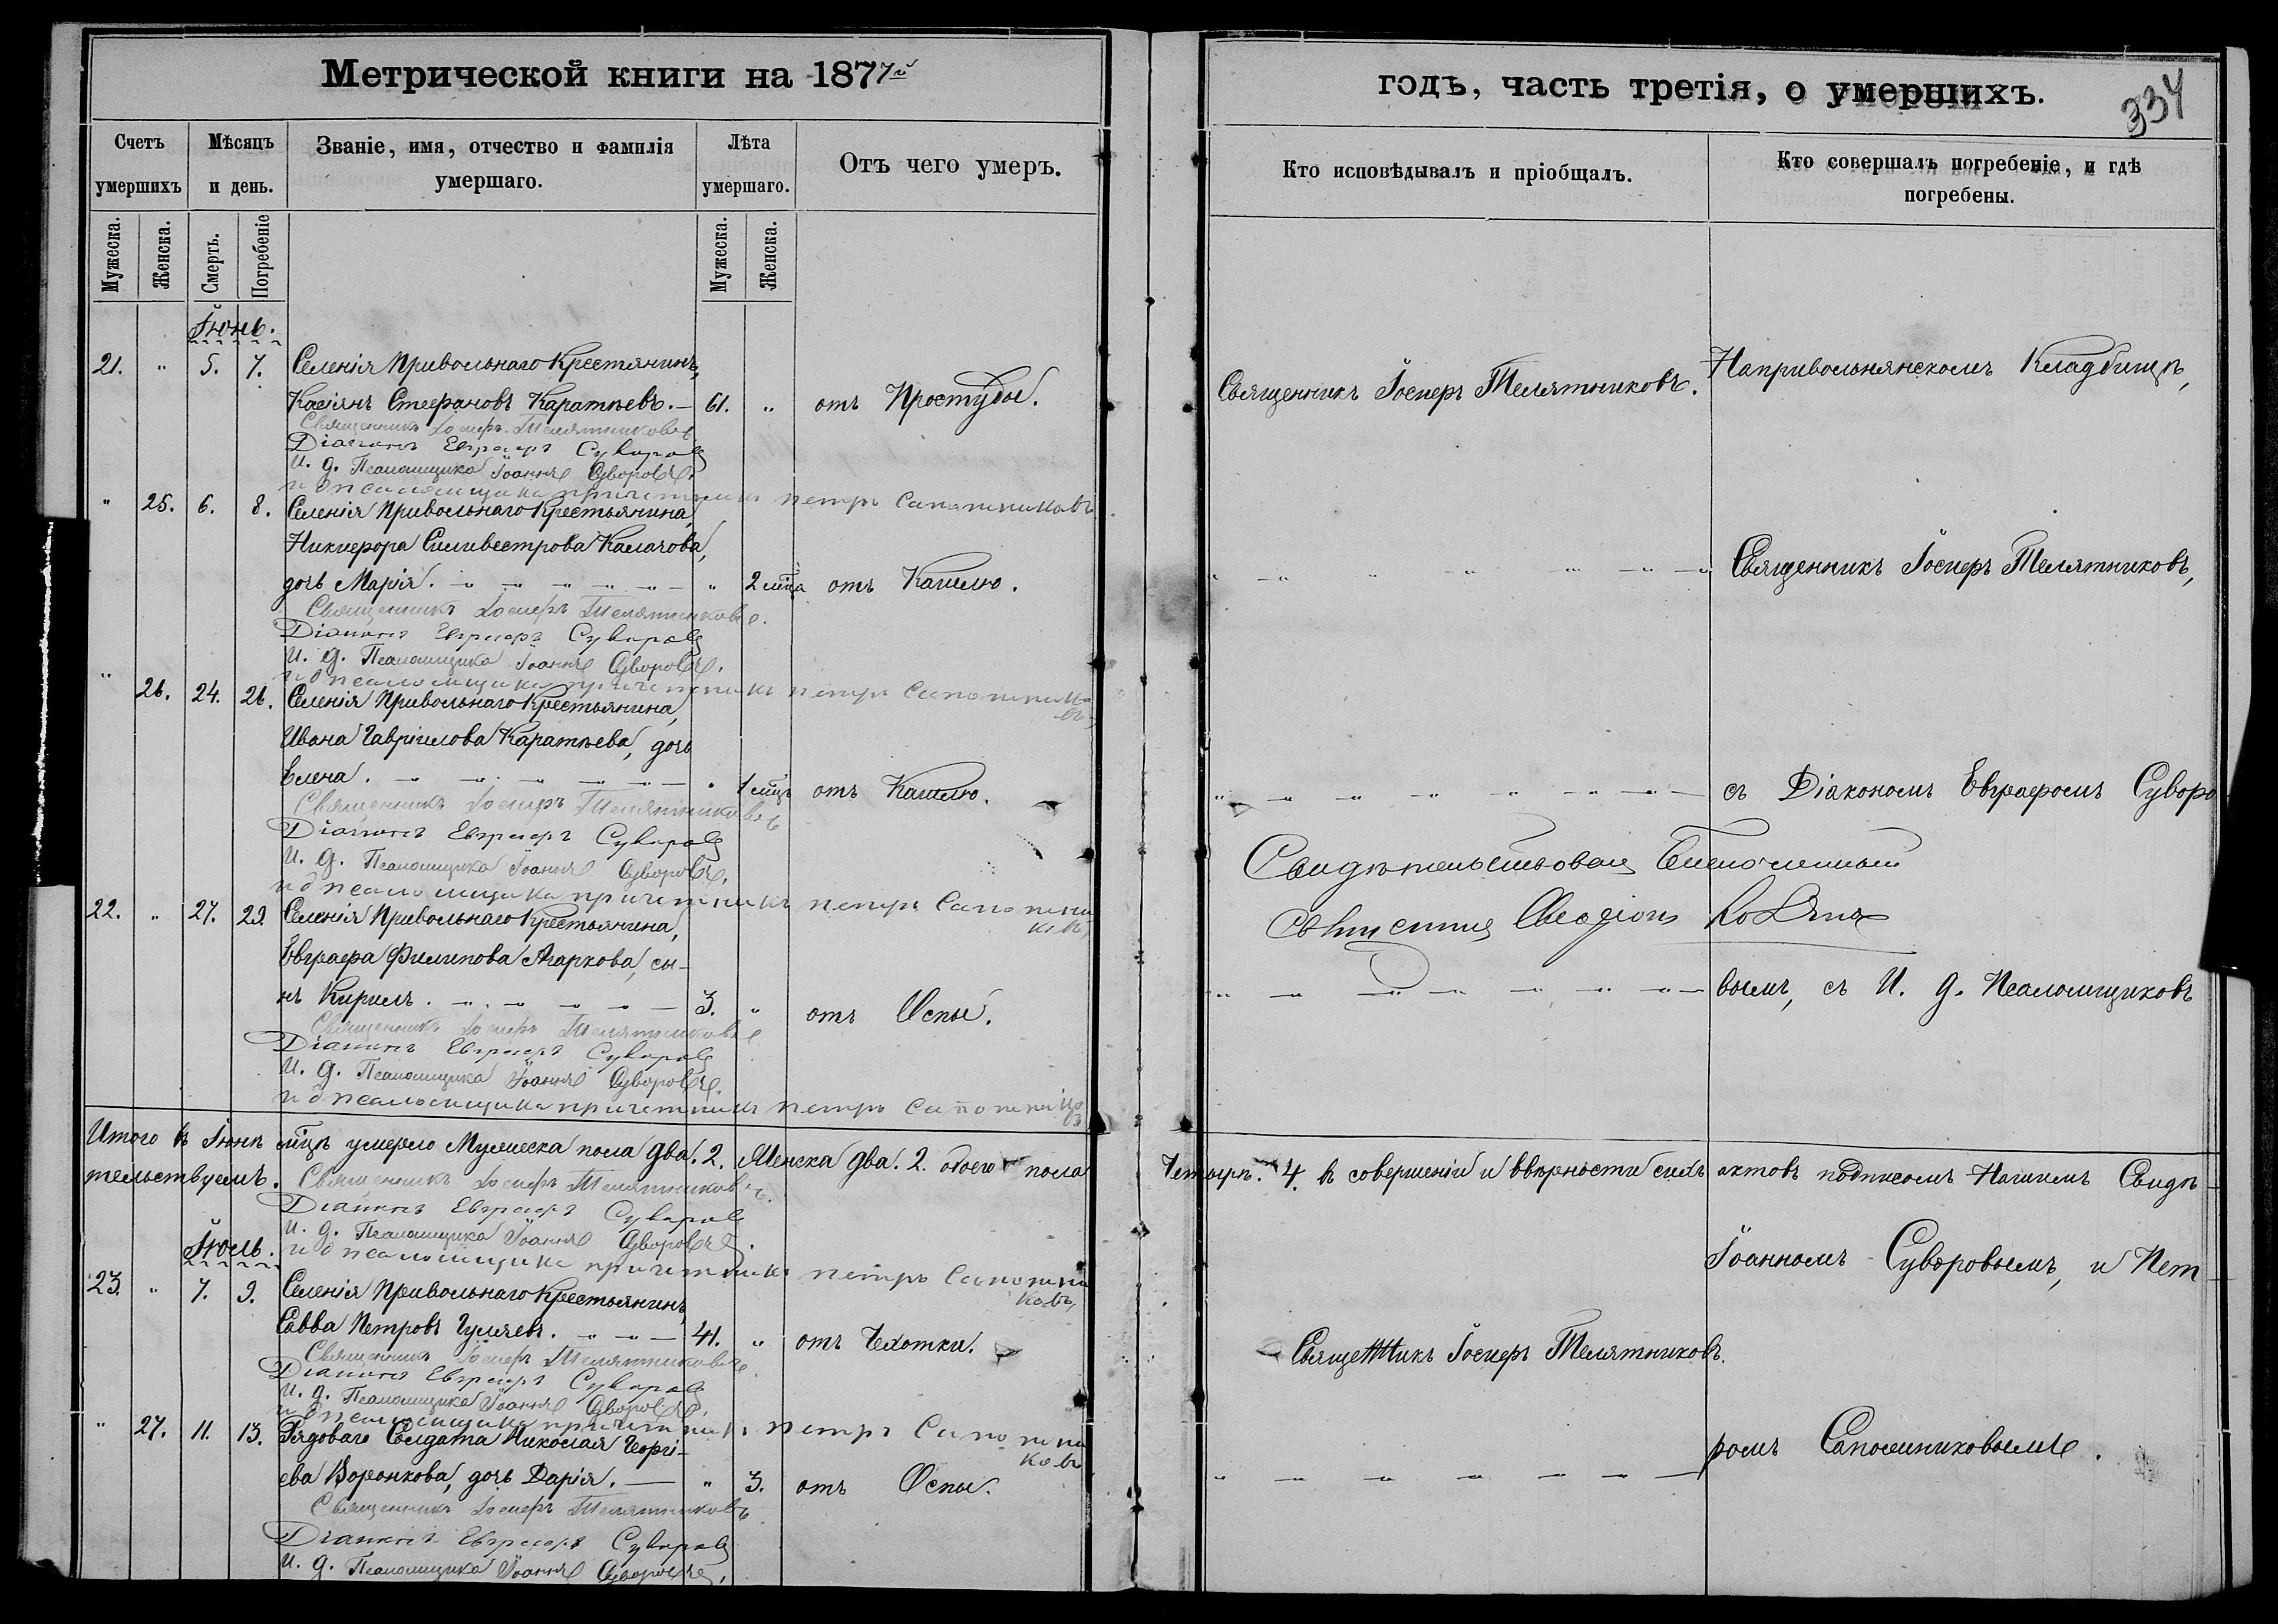 Метрической книги на 1877й
Счетъ умершихъ
Мѣсяцъ и день.
Званіе, имя, отчество и фамилія умершаго.
Лѣта умершаго.
Отъ чего умеръ.
Мужеска.
Женска.
Смерть.
Погребеніе
Мужеска.
Женска.
Іюнь.
21. " 5. 7. Селенія Привольнаго Крестянинъ,
Касіянъ Стефановъ Каратѣевъ. — 61. " отъ Простуды.
Священникъ Іосифъ Телятниковъ
Діаконъ Евграфъ Суворовъ
И. д. Псаломщика Іоаннъ Суворовъ.
и д псаломщика причетникъ петръ Сапожниковъ
" 25. 6. 8. Селенія Привольнаго Крестьянина,
Никифора Силивестрова Калачова,
дочь Марія. " 2 мца отъ Кашлю.
Священникъ Іосифъ Телятниковъ.
Діаконъ Евграфъ Суворовъ
И. д. Псаломщика Іоаннъ Суворовъ.
и д псаломщика причетникъ петръ Сапожниковъ
" 26. 24. 26. Селенія Привольнаго Крестьянина,
Ивана Гавріилова Каратѣева, дочь
Елена. " 1 мцъ отъ Кашлю.
Священникъ Іосифъ Телятниковъ
Діаконъ Евграфъ Суворовъ
И. д. Псаломщика Іоаннъ Суворовъ,
и д псаломщика причетникъ петръ Сапожниковъ,
22. " 27. 29. Селенія Привольнаго Крестьянина,
Евграфа Филипова Маркова, сы-
нъ Кирилъ. 3. " отъ Оспы.
Священникъ Іосифъ Телятниковъ
Діаконъ Евграфъ Суворовъ
И. д. Псаломщика Іоаннъ Суворовъ.
и д псаломщика причетникъ петръ Сапожниковъ
Итого въ Іюнѣ мцѣ умерло Мужеска пола два. 2. Женска два. 2. обоего пола
тельствуемъ. Священникъ Іосифъ Телятниковъ.
Діаконъ Евграфъ Суворовъ
И. д. Псаломщика Іоаннъ Суворовъ.
и д псаломщика причетникъ петръ Сапожниковъ,
Іюль.
23. " 7. 9. Селенія Привольнаго Крестьянинъ,
Савва Петровъ Гуляевъ. 41. " отъ Чехотки.
Священникъ Іосифъ Телятниковъ
Діаконъ Евграфъ Суворовъ
И. д. Псаломщика Іоаннъ Суворовъ,
и д псаломщика причетникъ петръ Сапожниковъ
" 27. 11. 13. Рядоваго Солдата Николая Георгі-
ева Воронкова, дочь Дарія. — " 3. отъ Оспы.
Священникъ Іосифъ Телятниковъ
Діаконъ Евграфъ Суворовъ
И. д. Псаломщика Іоаннъ Суворовъ,
годъ, часть третія, о умершихъ.
334
Кто исповѣдывалъ и пріобщалъ.
Кто совершалъ погребеніе, и гдѣ погребены.
Священникъ Іосифъ Телятниковъ.
Напривольнянскомъ Кладбищѣ,
Священникъ Іосифъ Телятниковъ,
съ Діакономъ Евграфомъ Суворо
Свидѣтельствовалъ Благочинный
Священникъ
вымъ, съ И. д. Псаломщиковъ
Четыре. 4. въ совершеніи и ввѣрности сихъ актовъ подписомъ Нашимъ Свидѣ
Іоанномъ Суворовымъ, и Пет
Священникъ Іосифъ Телятниковъ.
ромъ Сапожниковымъ.